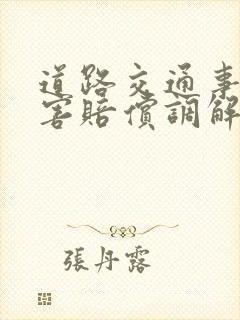 道路交通事
害賠償調解
張丹露